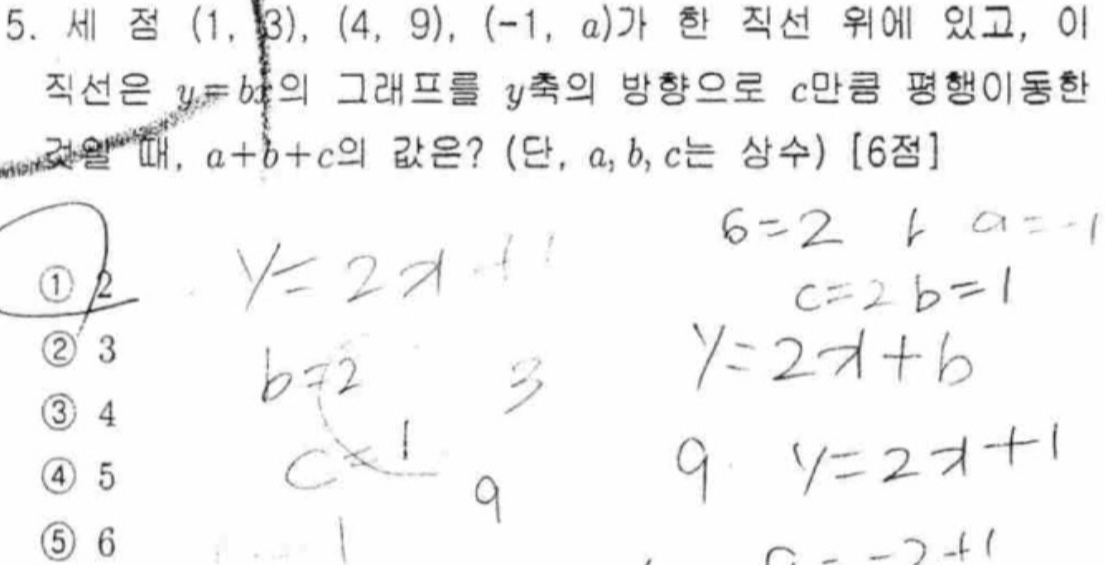 5. 세 점 (1, 3), (4, 9), (-1, a)가 한 직선 위에 있고, 이
직선은 y=bx의 그래프를 y축의 방향으로 c만큼 평행이동한
것일 때, a+b+c의 값은? (단, a, b, c는 상수) [6점]
① 2
② 3
③ 4
④ 5
⑤ 6
y=2x+1
b=2
3
c=1
9
b=2 a=-1
c=2 b=1
y=2x+b
9 y=2x+1
a=-2+1